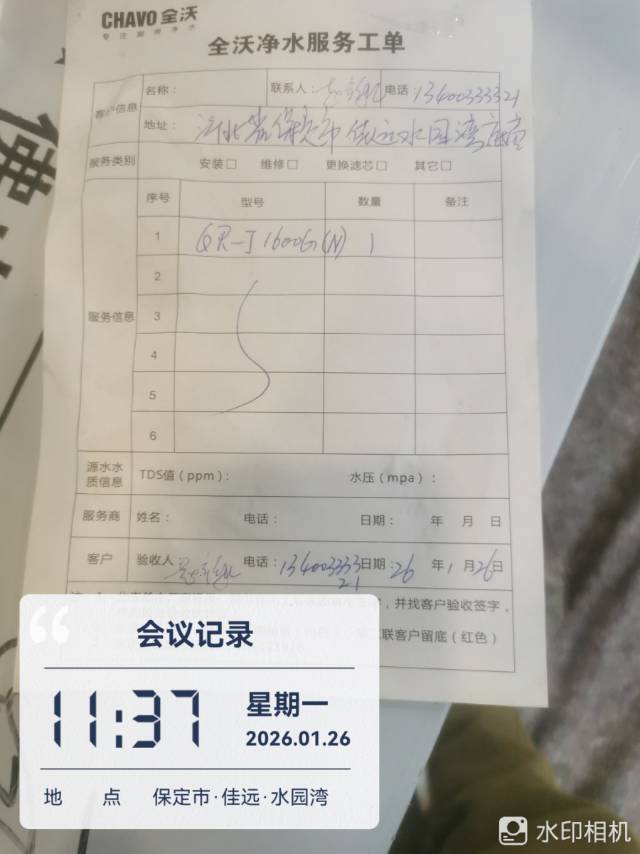 CHAVO 全沃
专注厨房净水
全沃净水服务工单
客户信息
名称： 联系人： 电话：13400333321
地址： 河北省保定市佳远水园湾底商
服务类别 安装□ 维修□ 更换滤芯□ 其它□
服务信息
序号 型号 数量 备注
1 QR-J1600G(N) 1
2
3
4
5
6
源水水质信息 TDS值（ppm）： 水压（mpa）：
服务商 姓名： 电话： 日期： 年 月 日
客户 验收人 电话：13400333321 日期：26 年 1 月 26 日
，并找客户验收签字，
二联客户留底（红色）
会议记录
11:37
星期一
2026.01.26
地 点 保定市·佳远·水园湾
水印相机